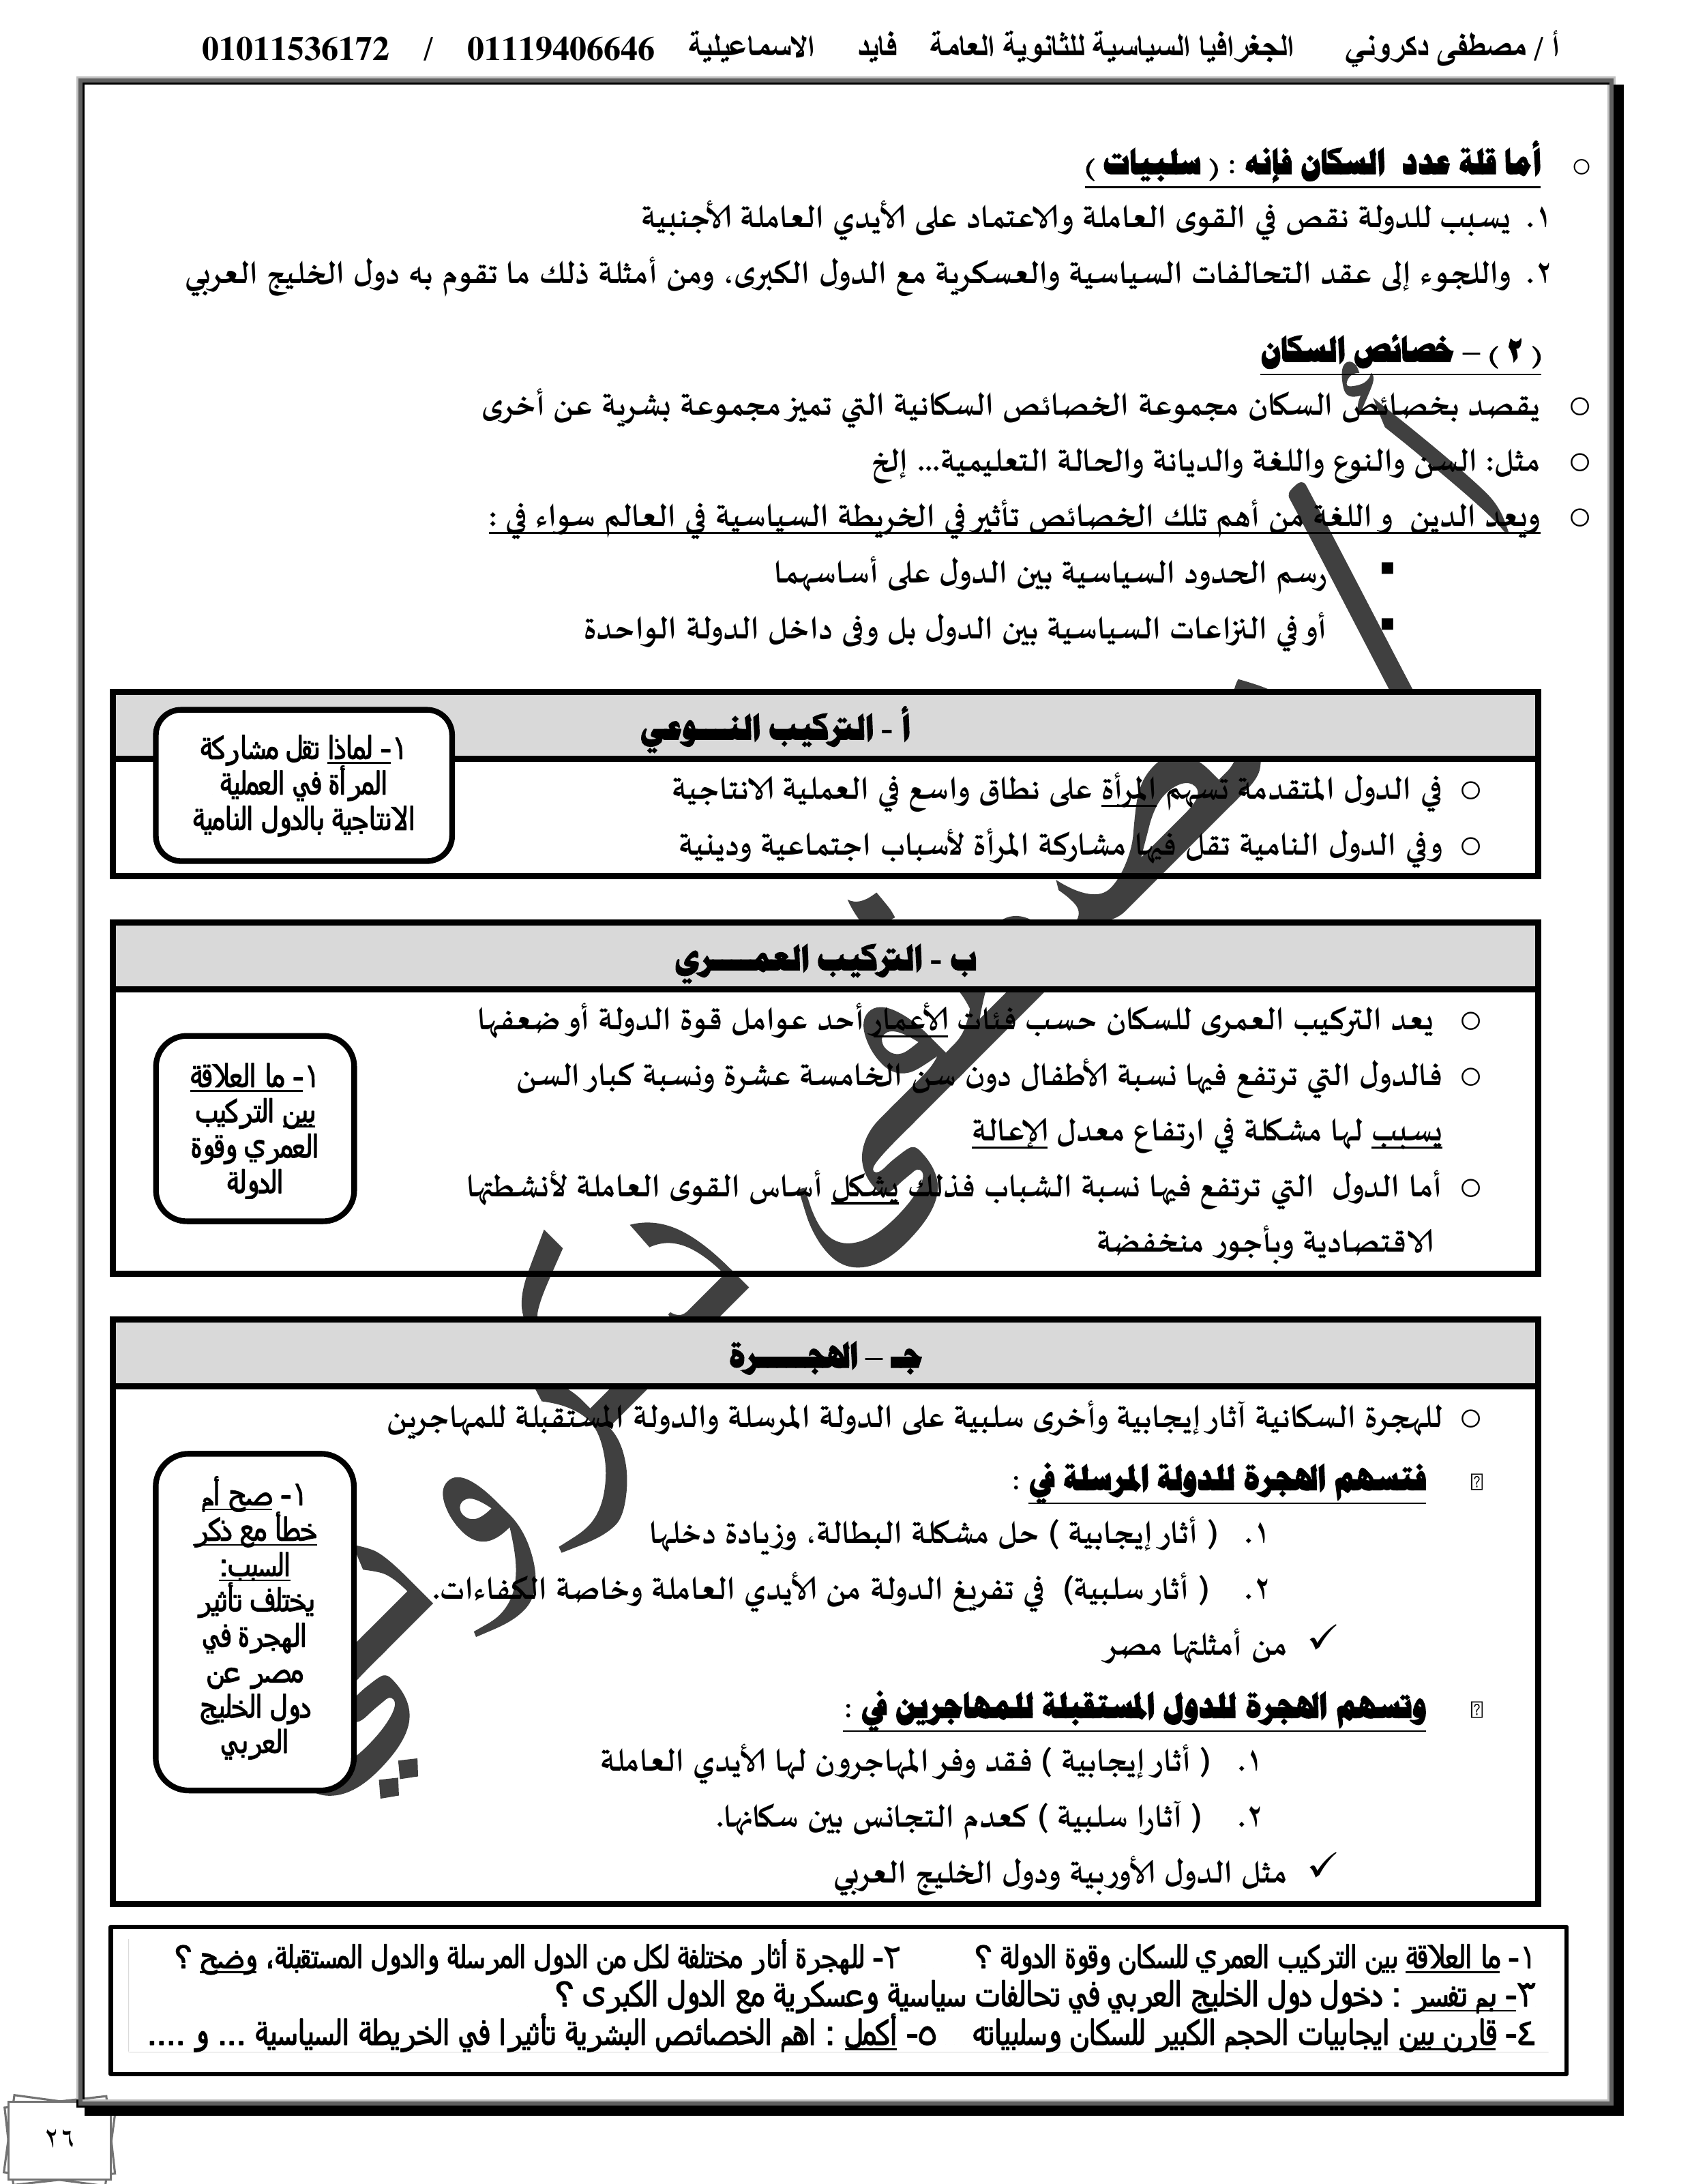 أ / مصطفى دكروني الجغرافيا السياسية للثانوية العامة فايد الاسماعيلية 01119406646 / 01011536172
أما قلة عدد السكان فإنه : ( سلبيات )
١. يسبب للدولة نقص في القوى العاملة والاعتماد على الأيدي العاملة الأجنبية
٢. واللجوء إلى عقد التحالفات السياسية والعسكرية مع الدول الكبرى، ومن أمثلة ذلك ما تقوم به دول الخليج العربي
( ٢ ) – خصائص السكان
يقصد بخصائص السكان مجموعة الخصائص السكانية التي تميز مجموعة بشرية عن أخرى
مثل: السن والنوع واللغة والديانة والحالة التعليمية... إلخ
ويعد الدين و اللغة من أهم تلك الخصائص تأثير في الخريطة السياسية في العالم سواء في :
رسم الحدود السياسية بين الدول على أساسهما
أو في النزاعات السياسية بين الدول بل وفى داخل الدولة الواحدة
أ - التركيب النـــوعي
١- لماذا تقل مشاركة
المرأة في العملية
الانتاجية بالدول النامية
في الدول المتقدمة تسهم المرأة على نطاق واسع في العملية الانتاجية
وفي الدول النامية تقل فيها مشاركة المرأة لأسباب اجتماعية ودينية
ب - التركيب العمـــــري
يعد التركيب العمرى للسكان حسب فئات الأعمار أحد عوامل قوة الدولة أو ضعفها
فالدول التي ترتفع فيها نسبة الأطفال دون سن الخامسة عشرة ونسبة كبار السن
يسبب لها مشكلة في ارتفاع معدل الإعالة
أما الدول التي ترتفع فيها نسبة الشباب فذلك يشكل أساس القوى العاملة لأنشطتها
الاقتصادية وبأجور منخفضة
١- ما العلاقة
بين التركيب
العمري وقوة
الدولة
جـ – الهجـــــرة
للهجرة السكانية آثار إيجابية وأخرى سلبية على الدولة المرسلة والدولة المستقبلة للمهاجرين
فتسهم الهجرة للدولة المرسلة في :
١. ( أثار إيجابية ) حل مشكلة البطالة، وزيادة دخلها
٢. ( أثار سلبية) في تفريغ الدولة من الأيدي العاملة وخاصة الكفاءات.
من أمثلتها مصر
وتسهم الهجرة للدول المستقبلة للمهاجرين في :
١. ( أثار إيجابية ) فقد وفر المهاجرون لها الأيدي العاملة
٢. ( آثارا سلبية ) كعدم التجانس بين سكانها.
مثل الدول الأوربية ودول الخليج العربي
١- صح أم
خطأ مع ذكر
السبب:
يختلف تأثير
الهجرة في
مصر عن
دول الخليج
العربي
١- ما العلاقة بين التركيب العمري للسكان وقوة الدولة ؟ ٢- للهجرة أثار مختلفة لكل من الدول المرسلة والدول المستقبلة، وضح ؟
٣- بم تفسر : دخول دول الخليج العربي في تحالفات سياسية وعسكرية مع الدول الكبرى ؟
٤- قارن بين ايجابيات الحجم الكبير للسكان وسلبياته ٥- أكمل : اهم الخصائص البشرية تأثيرا في الخريطة السياسية ... و ....
٢٦
أ / مصطفى دكروني